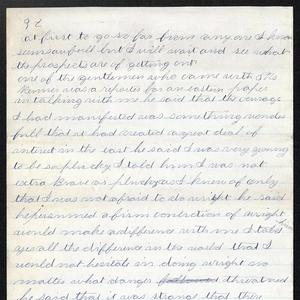 92
at first to go so far from any one I know
seems awfull but I will wait and see what
the prospects are of getting out
one of the gentlemen who came with Mrs
Kenner was a reporter for an eastern paper
in talking with me he said that the courage
I had manifested was something wonder
full that it had created a great deal of
intrest in the east he said I was very
to be so plucky I told him I was not
extra Brave or plucky as I knew of only
that I was not afraid to do wright he said
he presumed a firm conviction of wright
would make a difference with me I told
all the difference in the world that I
would not hesitate in doing wright no
matter what danger threatned
he said that it was strange that this